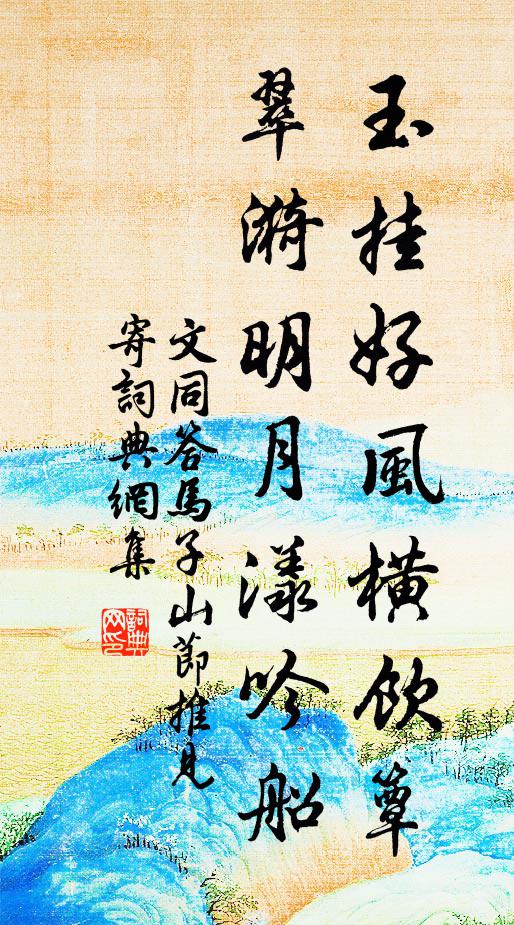 玉挂好風橫飲簟
翠漪明月漾吟船
文同答馬子山節推見
寄詞典網集
詞典
网印